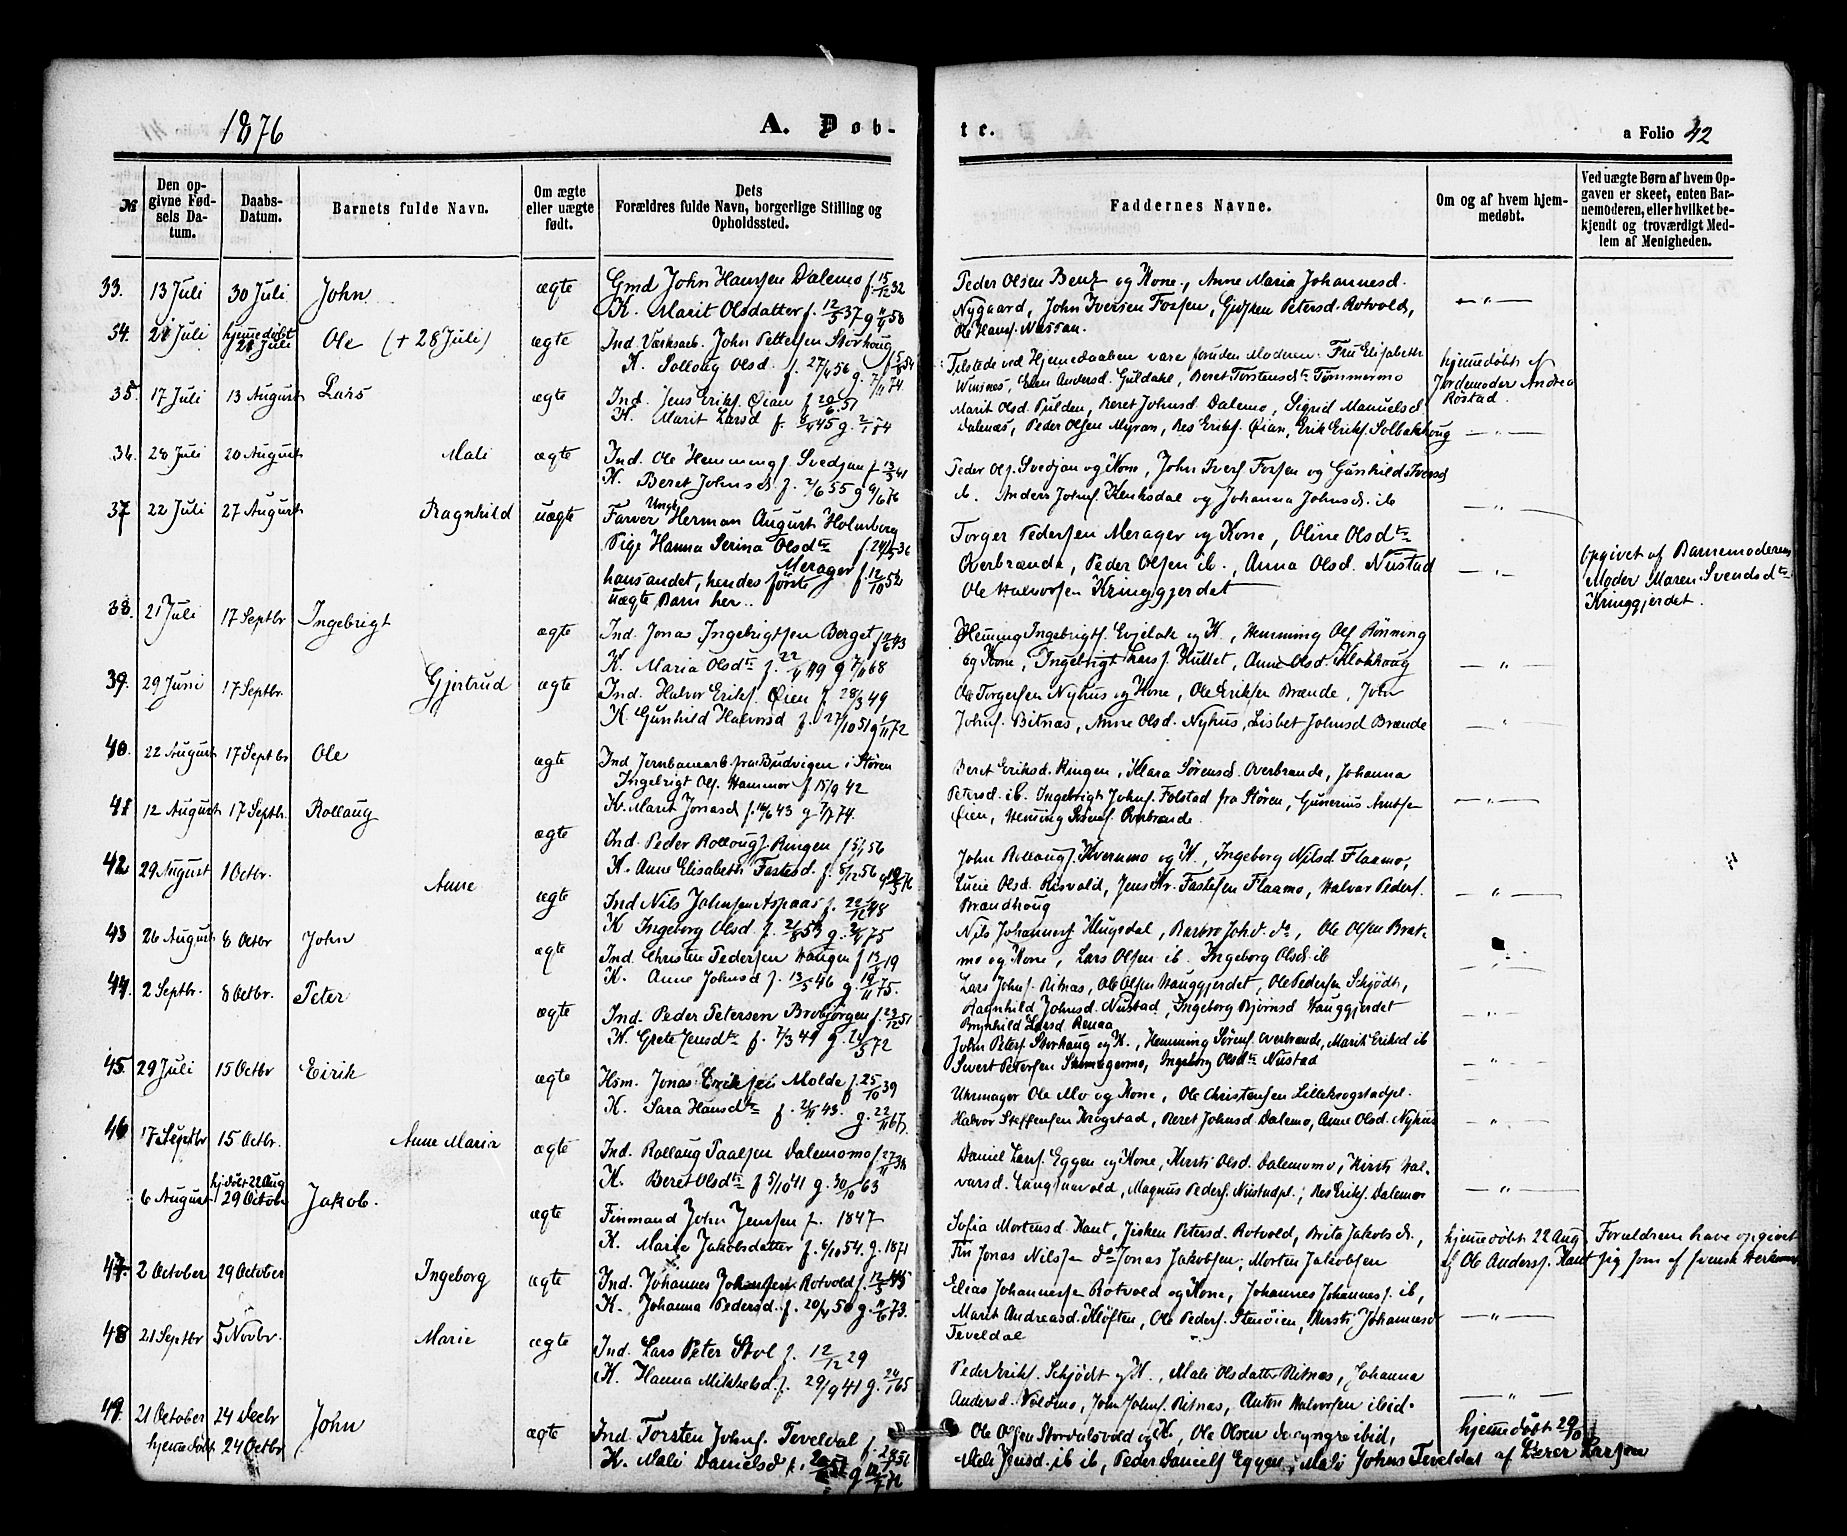 1876
A. Døb-
te.
a Folio 42
№
Den opgivne Fødsels Datum.
Daabs-Datum.
Barnets fulde Navn.
Om ægte eller uægte født.
Dets Forældres fulde Navn, borgerlige Stilling og Opholdssted.
Faddernes Navne.
Om og af hvem hjemmedøbt.
Ved uægte Børn af hvem Opgaven er skeet, enten Barnemoderen, eller hvilket bekjendt og troværdigt Medlem af Menigheden.
33. 13 Juli 30 Juli John ægte Gmd John Hanssen Dalemo f. 15/12 32
K. Marit Olsdatter f. 12/5 37
Peder Olsen Benz og Kone, Anne Maria Johannesd.
Nygaard, John Iversen Fossen, Petersd. Rotvold,
Ole Hans. Nassan.
34. 21 Juli hjemmedøbt 21 Juli Ole (+ 28 Juli) ægte Ind. Værksarb. John Pettersen Storhoug
K. Sollaug Olsd. f. 27/4 56 g. 7/11 74.
Tilstede ved Hjemmedaaben vare foruden Moderen: Fru Elisabeth
Winsnes, Elen Andersd. Guldahl, Beret Torstensdtr Tømmermo
hjemmedøbt
Jordemoder Andrea
Røstad.
35. 17 Juli 13 August Lars ægte Ind. Jens Eriks. Øian f. 20/6 51
K. Marit Larsd f. 8/4 45 g. 2/1 74
Marit Olsd. Pulden, Beret Johnsd. Dalemo, Sigrid Manuelsd
Dalenæs, Peder Olsen Myran, Eriks. Øian, Erik Eriks. Solbakhoug
36. 28 Juli 20 August Mali ægte Ind. Ole Hemmings. Svedjan f. 13/3 41
K. Beret Johnsd. f. 2/6 55 g 9/6 76
Peder Ols. Svedjan og Kone, John Ivers. Fossen og Gunhild Iversd
ib. Anders Johns. og Johanna Johnsd. ib
37 22 Juli 27 August Ragnhild uægte Farver Herman August Holmberg
Pige Hanna Serina Olsdtr f. 24/5 36
Merager f. 12/10 52
hans andet, hendes første
uægte Barn her..
Torger Pedersen Merager og Kone, Oline Olsdtr
Overbrænde, Peder Olsen ib., Anna Olsd. Nustad
Ole Halvorsen Kringgjerdet
Opgivet af Barnemoderens
Moder Maren Svendsdtr
Kringgjerdet.
38. 21 Juli 17 Septbr Ingebrigt ægte Ind. Jonas Ingebrigtsen Berget
K. Maria Olsdtr f. 22/4 49 g 7/10 68
Hemming Ingebrigts. Evjelak og K., Hemming Ols. Rønning
og Kone, Ingebrigt Lars. Hullet, Anne Olsd. Klokhoug
39. 29 Juni 17 Septbr. Gjertrud ægte Ind. Halvor Eriks. Øien f. 28/3 49
K. Gunhild Halvorsd f. 27/10 51 g 1/11 72
Ole Torgersen Nyhus og Kone, Ole Eriksen Brænde, John
Johns. Bitnæs, Anne Olsd. Nyhus, Lisbet Johnsd Brænde
40. 22 August 17 Septbr Ole ægte Ind Jernbanearb. fra Budvigen i Støren
Ingebrigt Ols. Hammer f. 15/9 42
K. Marit Jonasd f. 16/6 43 g 7/7 74.
Beret Eriksd. Ringen, Klara Sørensd. Overbrænde, Johanna
Petersd. ib. Ingebrigt Johns. Folstad fra Støren, Gunerius Arntsen
Øien, Hemming Sørens. Overbrænde.
41 12 August 17 Septbr. Rollaug ægte Ind. Peder Rollaugs. Ringen
K. Anne Elisabeth Fastesd. f. 8/12 56
John Rollaugs. Kvernmo og K., Ingeborg Nilsd Flaamo,
Lucie Olsd. Risvold, Jens Kr. Fastesen Flaamo, Halvar Peders.
Brændhoug
42 29 August 1 Octbr. Anne ægte Ind Nils Johnsen Aspaas f. 22/12 48
K Ingeborg Olsd. f. 2/8 53
Nils Johanness. Klugsdal, Barbro Joh. do, Ole Olsen Brat-
mo og Kone, Lars Olsen ib. Ingeborg Olsd. ib
43 26 August 8 Octbr John ægte Ind. Christen Pedersen Haugen
K. Anne Johnsd f. 13/5 46 g. 19/11 75.
Lars Johns. Ritnæs, Ole Olsen Hauggjerdet, Ole Pedersen Schjødt,
Ragnhild Johnsd. Nustad, Ingeborg Bjørnsd Hauggjerdet
Brynhild Larsd. Renaa
44. 2 Septbr. 8 Octbr. Peter ægte Ind. Peder Petersen Brobjørgen f. 23/12 51
K. Grete Jensdtr f. 7/3 49
John Peters. Storhaug og K., Hemming Sørens. Overbrænde, Marit Eriksd ib
Sivert Petersen, Ingeborg Olsdtr Nustad
45. 29 Juli 15 Octbr Eirik ægte Hsm. Jonas Eriksen Molde f. 25/10 39
K. Sara Hansdtr f. 2/11 43. g. 22/11 67.
Uhrmager Ole Mo og Kone, Ole Christensen Lillekrogstadpl.
Halvor Steffensen Krogstad, Beret Johnsd. Dalemo, Anne Olsd. Nyhus
46 17 Septbr 15 Octbr. Anne Maria ægte Ind. Rollaug Paalsen Dalemomo
K. Beret Olsdtr f 5/10 41 g. 30/10 63
Daniel Lars. Eggen og Kone, Kirsti Olsd. Dalemomo, Kirsti Hal-
varsd. Langnæsvold, Magnus Peders. Nustadpl., Eriks. Dalemo
6 August hj. døbt 22 Aug 29 October Jakob. ægte Finmand John Jenssen f. 1847
K. Marie Jakobsdatter f. 6/10 54. g. 1871
Sofia Mortensd. Kant, Petersd. Rotvold, Brita Jakobsd.,
Jonas Nilssen, do Jonas Jakobsen, Morten Jakobsen
hjemmedøbt 22 Aug
af Ole Anderss. Kant
Forældrene have opgivet
sig som af svensk Herkomst
47. 2 October 29 October Ingeborg ægte Ind. Johannes Johansen Rotvold f. 12/3 45
K. Johanna Pedersd. f. 20/4 50 g. 11/6 73.
Elias Johannessen Rotvold og Kone, Johannes Johanness. ib,
Marit Andreasd. Kløften, Ole Peders. Stenøien, Kirsti Johannesd
Teveldal
48 21 Septbr 5 Novbr. Marie ægte Ind. Lars Peter Stol f. 12/12 29
K. Hanna Mikkelsd. f. 29/9 41 g. 24/1 65
Peder Eriks. Schjødt og K., Mali Olsdatter Ritnæs, Johanna
Andersd. Voldmo, John Johns. Ritnæs, Anton Halvorsen ibid.
49. 21 October 24 Decbr John ægte Ind. Torsten Johns. Teveldal
hjemmedøbt 24 Octbr
K. Mali Danielsd
Ole Olsen Stordalsvold og K, Ole Olsen den yngre ibid,
Mali Jensd. ib ib, Peder Daniels Eggen, Mali Johns Teveldal
hjemmedøbt 29/10
af Peter Larssen